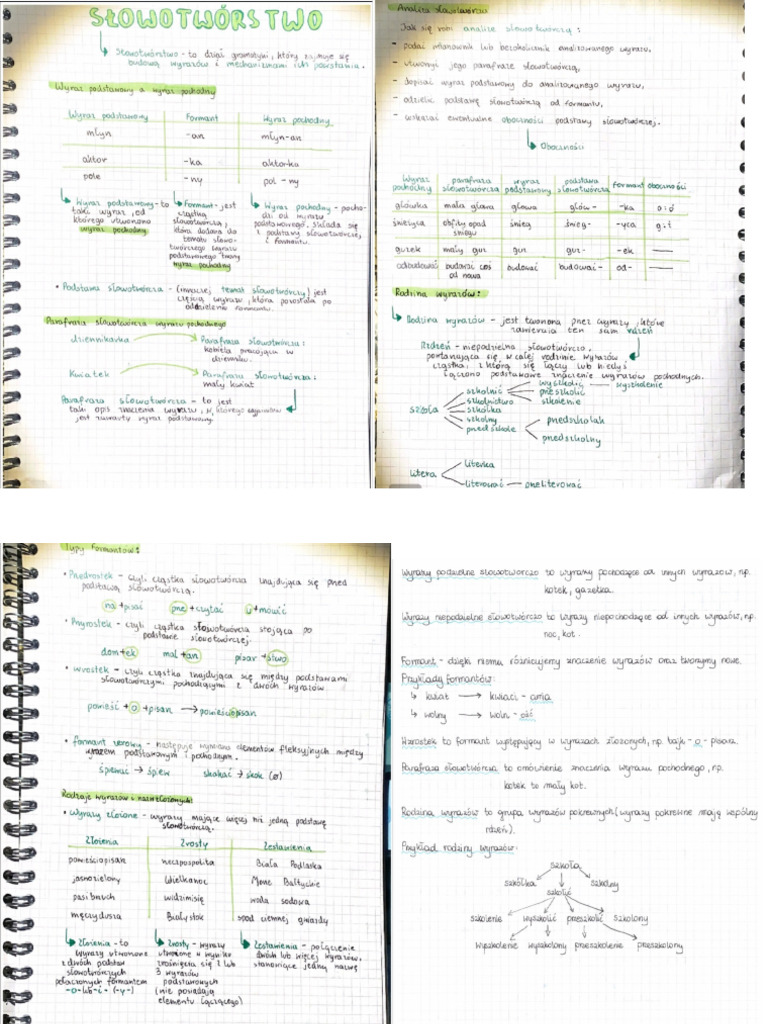 SŁOWOTWÓRSTWO
Słowotwórstwo - to dział gramatyki, który zajmuje się
budową wyrazów i mechanizmami ich powstania.
Wyraz podstawowy a wyraz pochodny
Wyraz podstawowy Formant Wyraz pochodny
młyn -arz młyn-arz
aktor -ka aktorka
pole -ny pol-ny
Wyraz podstawowy - to
taki wyraz, od
którego utworzono
wyraz pochodny
Formant - jest
cząstką
słowotwórczą,
która dodana do
tematu słowo-
twórczego wyrazu
podstawowego tworzy
wyraz pochodny
Wyraz pochodny - pocho-
dzi od wyrazu
podstawowego, składa się
z podstawy słowotwórczej
i formantu.
• Podstawa słowotwórcza - (inaczej temat słowotwórczy) jest
częścią wyrazu, która pozostała po
oddzieleniu formantu.
Parafraza słowotwórcza wyrazu pochodnego
dziennikarka Parafraza słowotwórcza:
kobieta pracująca w
dzienniku.
Kwiatek Parafraza słowotwórcza:
mały kwiat
Parafraza słowotwórcza - to jest
taki opis znaczenia wyrazu, w którego
jest zawarty wyraz podstawowy.
Analiza słowotwórcza
Jak się robi analizę słowotwórczą:
- podać mianownik lub bezokolicznik analizowanego wyrazu,
- utworzyć jego parafrazę słowotwórczą,
- dopisać wyraz podstawowy do analizowanego wyrazu,
- oddzielić podstawę słowotwórczą od formantu,
- wskazać ewentualne oboczności podstawy słowotwórczej.
Oboczności
Wyraz pochodny parafraza słowotwórcza wyraz podstawowy podstawa słowotwórcza formant oboczności
główka mała głowa głowa głów- -ka o:ó
śnieżyca obfity opad śniegu śnieg śnieg- -yca g:ż
guzek mały guz guz- -ek —
odbudować budować coś od nowa budować budować- od- —
Rodzina wyrazów:
Rodzina wyrazów - jest tworzona przez wyrazy, które
zawierają ten sam rdzeń
Rdzeń - niepodzielna słowotwórczo,
powtarzająca się w całej rodzinie wyrazów
cząstka, z którą się łączy lub kiedyś
łączono podstawowe znaczenie wyrazów pochodnych.
szkoła
szkolnić wyszkolić wyszkolenie
przeszkolić
szkolnictwo szkolenie
szkółka
szkolny
przedszkole przedszkolak
przedszkolny
litera
literka
literować przeliterować
Typy formantów:
• Przedrostek - czyli cząstka słowotwórcza znajdująca się przed
podstawą słowotwórczą.
na+pisać prze+czytać u+mówić
• Przyrostek - czyli cząstka słowotwórcza stojąca po
podstawie słowotwórczej.
dom+ek mal+arz pisar+stwo
• wrostek - czyli cząstka znajdująca się między podstawami
słowotwórczymi pochodzącymi z dwóch wyrazów
powieść+o+pisarz → powieściopisarz
• formant zerowy - następuje wymiana elementów fleksyjnych między
wyrazem podstawowym i pochodnym.
śpiewać → śpiew skakać → skok (ø)
Rodzaje wyrazów złożonych:
• Wyrazy złożone - wyrazy mające więcej niż jedną podstawę
słowotwórczą.
Złożenia Zrosty Zestawienia
powieściopisarz rzeczpospolita Biała Podlaska
jasnozielony Wielkanoc Morze Bałtyckie
pasibrzuch widzimisię woda sodowa
męczydusza Białystok spod ciemnej gwiazdy
Złożenia - to
wyrazy utworzone
z dwóch podstaw
słowotwórczych
połączonych formantem
-o- lub -i- (-y-)
Zrosty - wyrazy
utworzone w wyniku
zrośnięcia się 2 lub
3 wyrazów
podstawowych
(nie posiadają
elementu łączącego)
Zestawienia - połączenie
dwóch lub więcej wyrazów,
stanowiące jedną nazwę
Wyrazy podzielne słowotwórczo to wyrazy pochodzące od innych wyrazów, np.
kotek, gazetka.
Wyrazy niepodzielne słowotwórczo to wyrazy niepochodzące od innych wyrazów, np.
noc, kot.
Formant - dzięki niemu różnicujemy znaczenie wyrazów oraz tworzymy nowe.
Przykłady formantów:
kwiat → kwiaci - arnia
wolny → woln - ość
Wzrostek to formant występujący w wyrazach złożonych, np. bajk - o - pisarz.
Parafraza słowotwórcza to omówienie znaczenia wyrazu pochodnego, np.
kotek to mały kot.
Rodzina wyrazów to grupa wyrazów pokrewnych (wyrazy pokrewne mają wspólny
rdzeń).
Przykład rodziny wyrazów:
szkoła
szkółka szkolić szkolny
szkolenie wyszkolić przeszkolić szkolony
wyszkolenie wyszkolony przeszkolenie przeszkolony